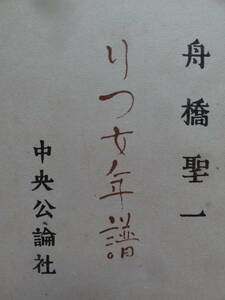 舟橋聖一
りつ女年譜
中央公論社